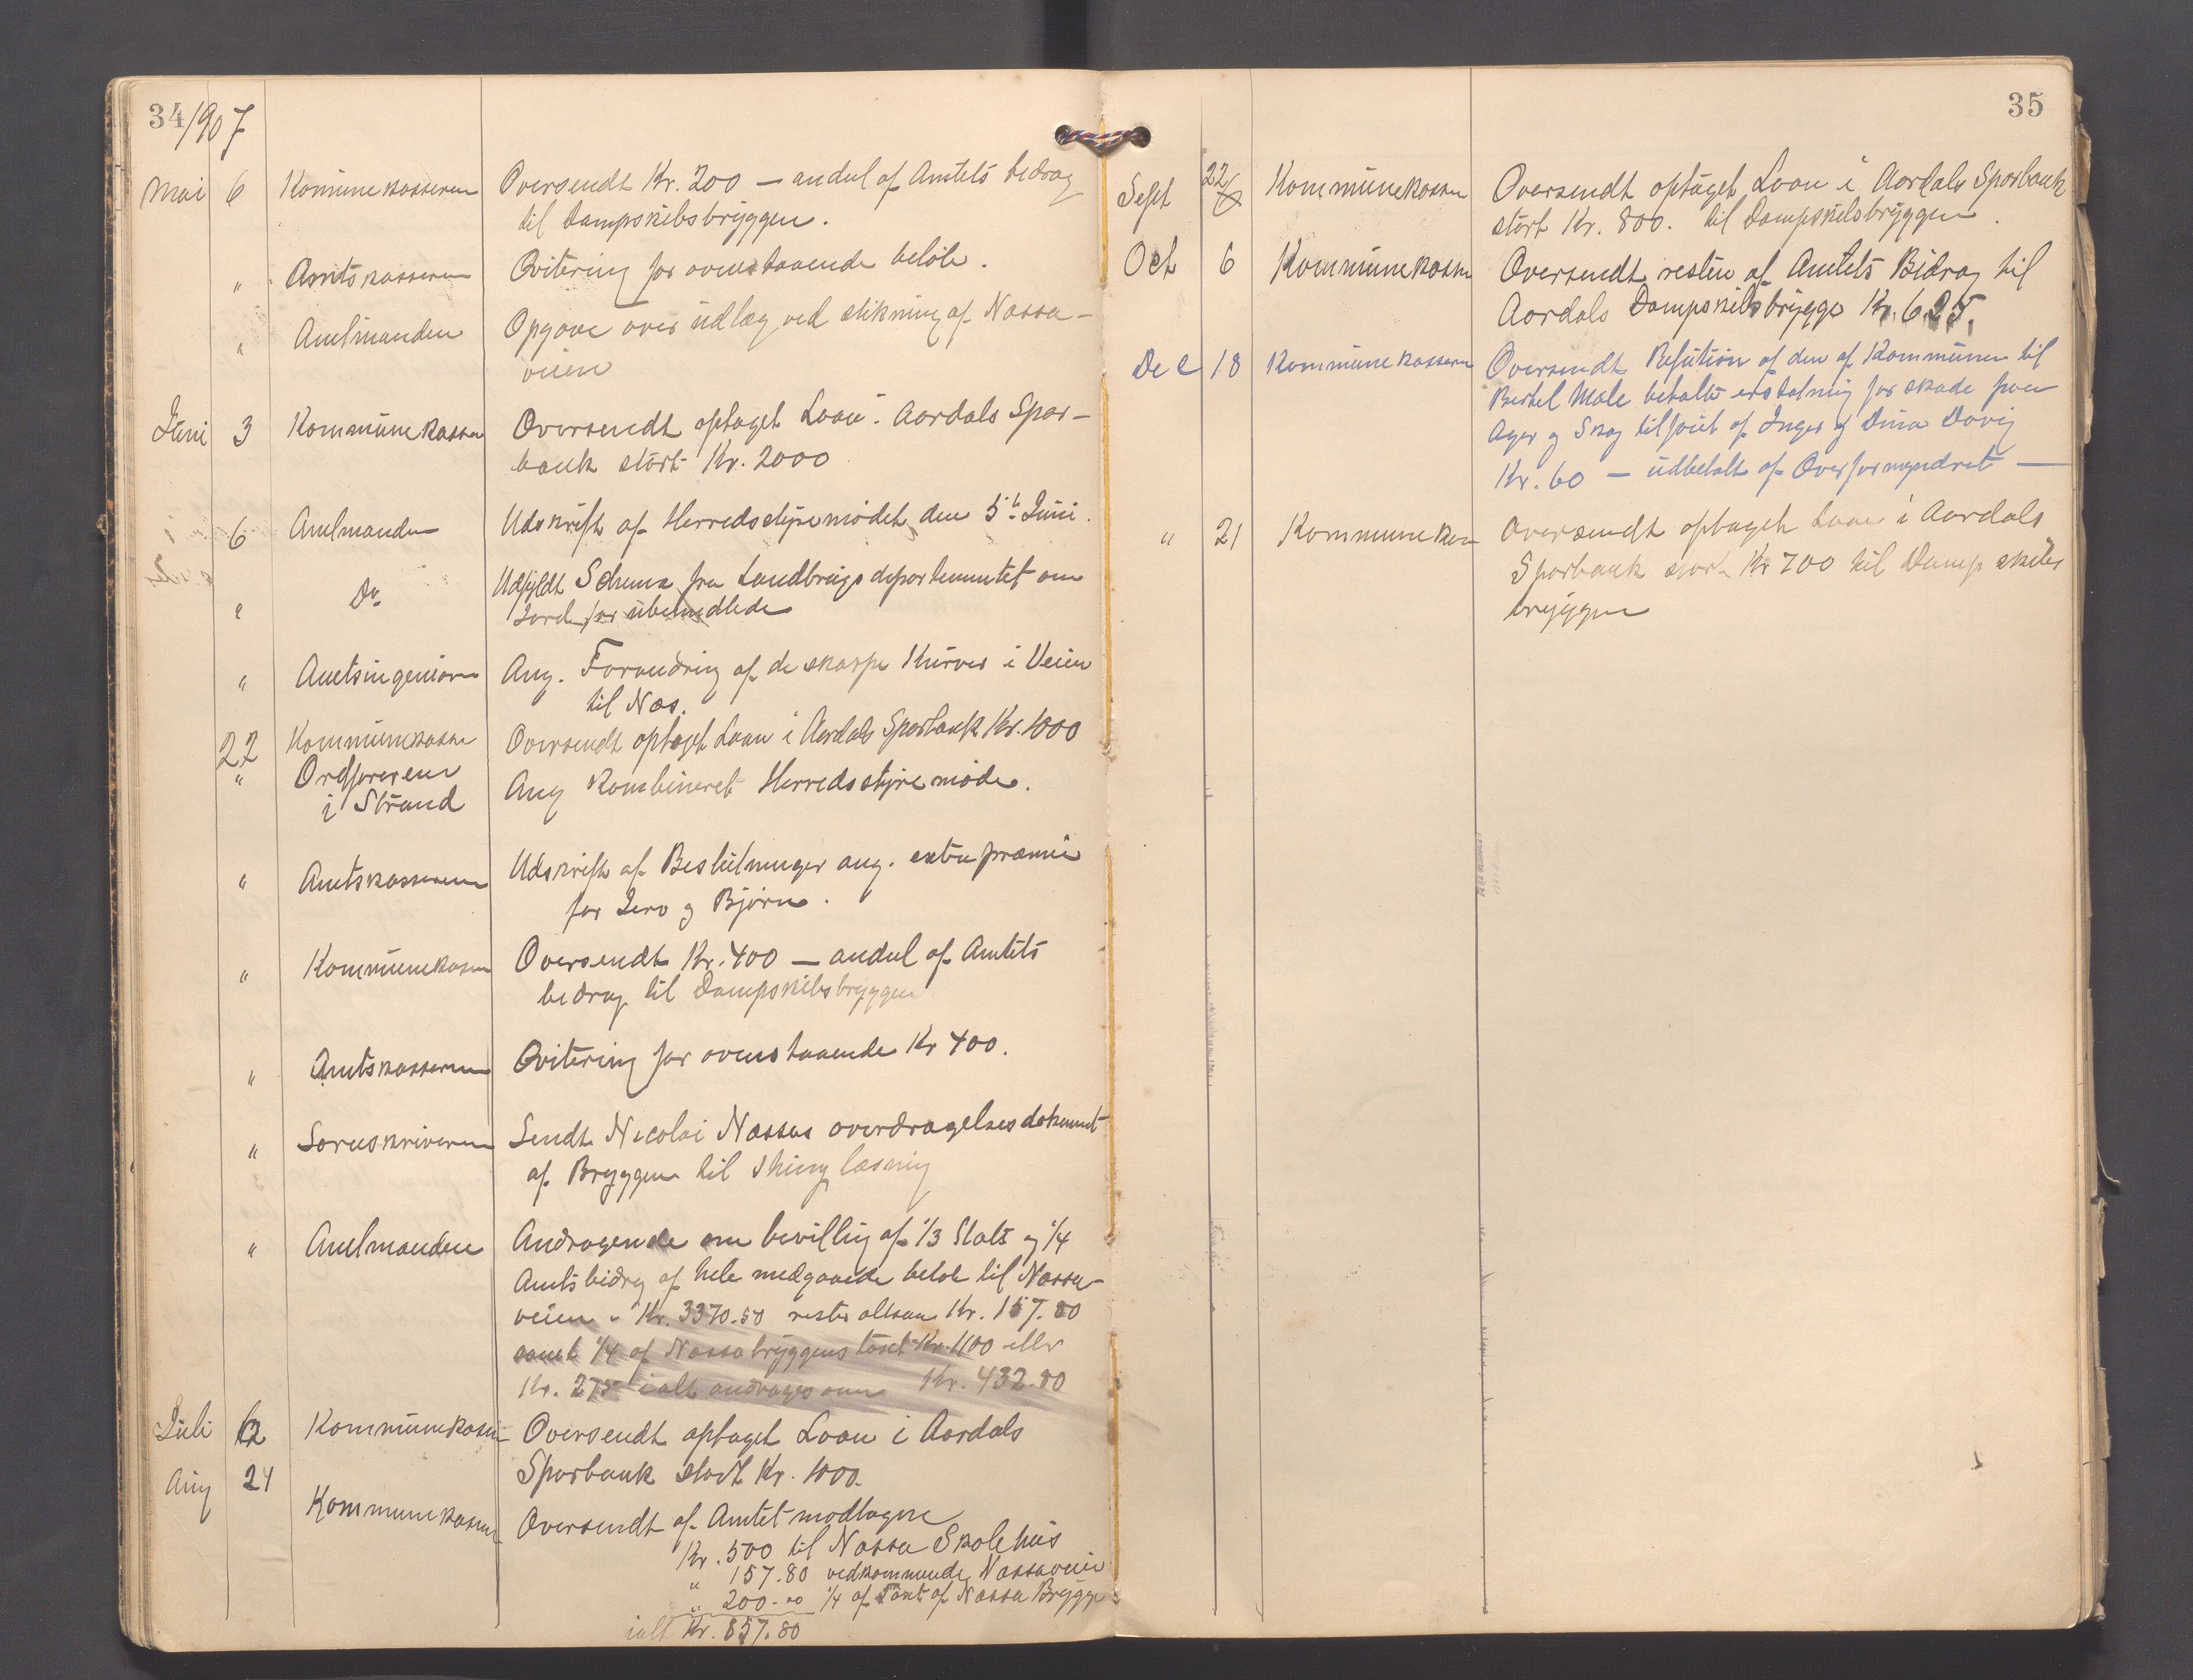 34/907
Mai 6 Komunekasseren Oversendt Kr. 200 — andel af Amtets bedrag
til Dampskibsbryggen.
" Amtskasseren Qvitering for ovenstaaende beløb.
" Amtmanden Opgave over udlæg ved stikning af Næssa-
veien
Juni 3 Kommunekassen Oversendt optaget Laan i Aardals Spar-
bank stort Kr. 2000
6 Amtmanden Udskrift af Herredsstyremødet den 5te Juni.
" Do Udfyldt Schema fra Landbrugsdepartementet om
Jord for ubemidlede
" Amtsingeniøren Ang. Forandring af de skarpe Kurver i Veien
til Næs.
22 Kommunekassen Oversendt optaget Laan i Aardals Sparbank Kr. 1000
" Ordføreren Ang Kombineret Herredsstyremøde.
i Strand
" Amtskasseren Udskrift af Beslutninger ang. extra præmie
for Jerv og Bjørn.
" Kommunekassen Oversendt Kr. 400 — andel af Amtets
bedrag til Dampskibsbryggen
" Amtskasseren Qvitering for ovenstaaende Kr 400.
" Sorenskriveren Sendt Nicolai Næssas overdragelsesdokument
af Bryggen til Thinglæsning
" Amtmanden Andragende om bevilling af 1/3 Stats og 1/4
Amtsbidrag af hele medgaaede beløb til Næssa-
veien - Kr. 3370.50 rester altsaa Kr. 157.80
samt 1/4 af Næssabryggens taxt Kr. 1100 eller
Kr. 275 ialt andrages om Kr. 432.80
Juli 12 Kommunekassen Oversendt optaget Laan i Aardals
Sparbank stort Kr. 1000.
Aug 24 Kommunekassen Oversendt af Amtet modtagne
Kr. 500 til Næssa Skolehus
" 157.80 vedkommende Næssaveien
" 200.00 1/4 af Taxt af Næssa Brygge
ialt Kr. 857.80
35
Sept 22 Kommunekassen Oversendt optaget Laan i Aardals Sparbank
stort Kr. 800. til Dampskibsbryggen.
Oct 6 Kommunekassen Oversendt resten af Amtets Bidrag til
Aardals Dampskibsbrygge Kr. 625.
Dec 18 Kommunekasseren Oversendt Refution af den af Kommunen til
Bertel Male betalte erstatning for skade paa
Ager og Skog tilføiet af Inger og Dina Døvig
Kr. 60 — udbetalt af Overformynderiet —
" 21 Kommunekas Oversendt optaget Laan i Aardals
Sparbank stort Kr 700 til Dampskibs
bryggen